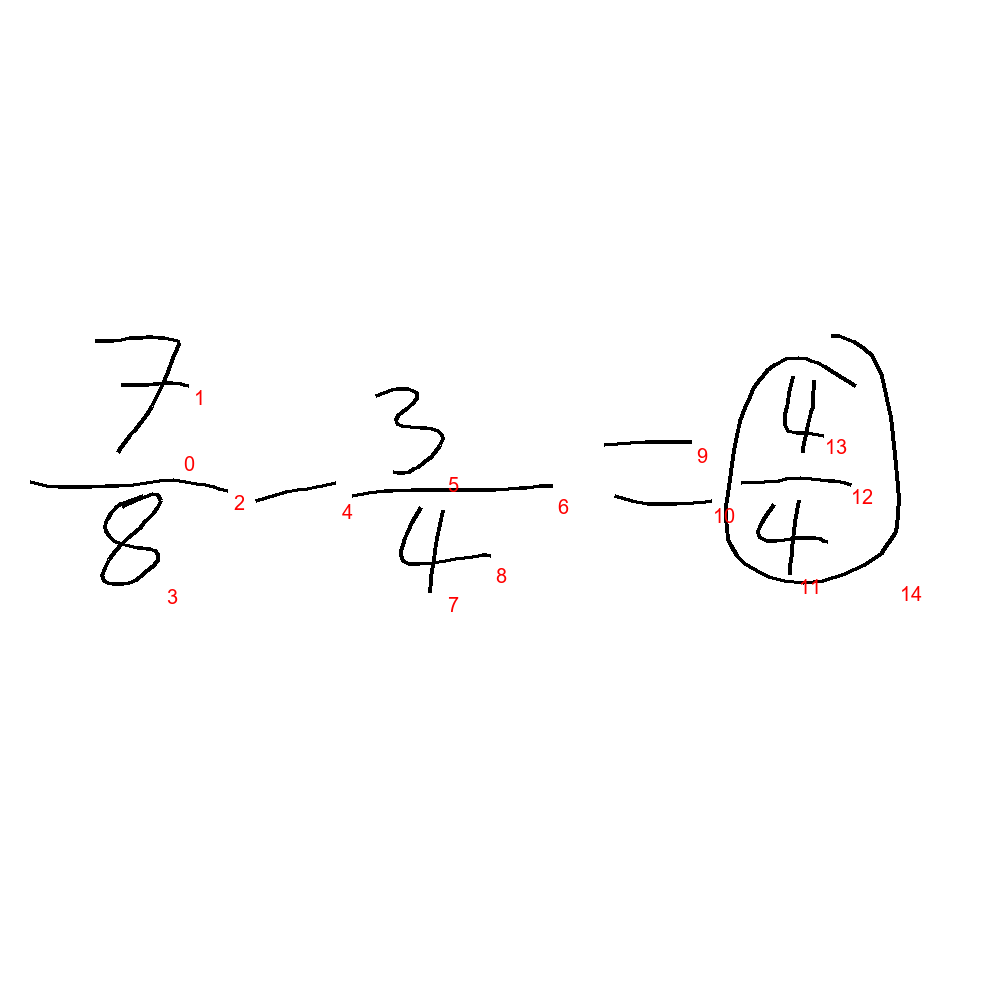 7/8 - 3/4 = 4/4
1
0
2
3
4
5
6
7
8
9
10
11
12
13
14